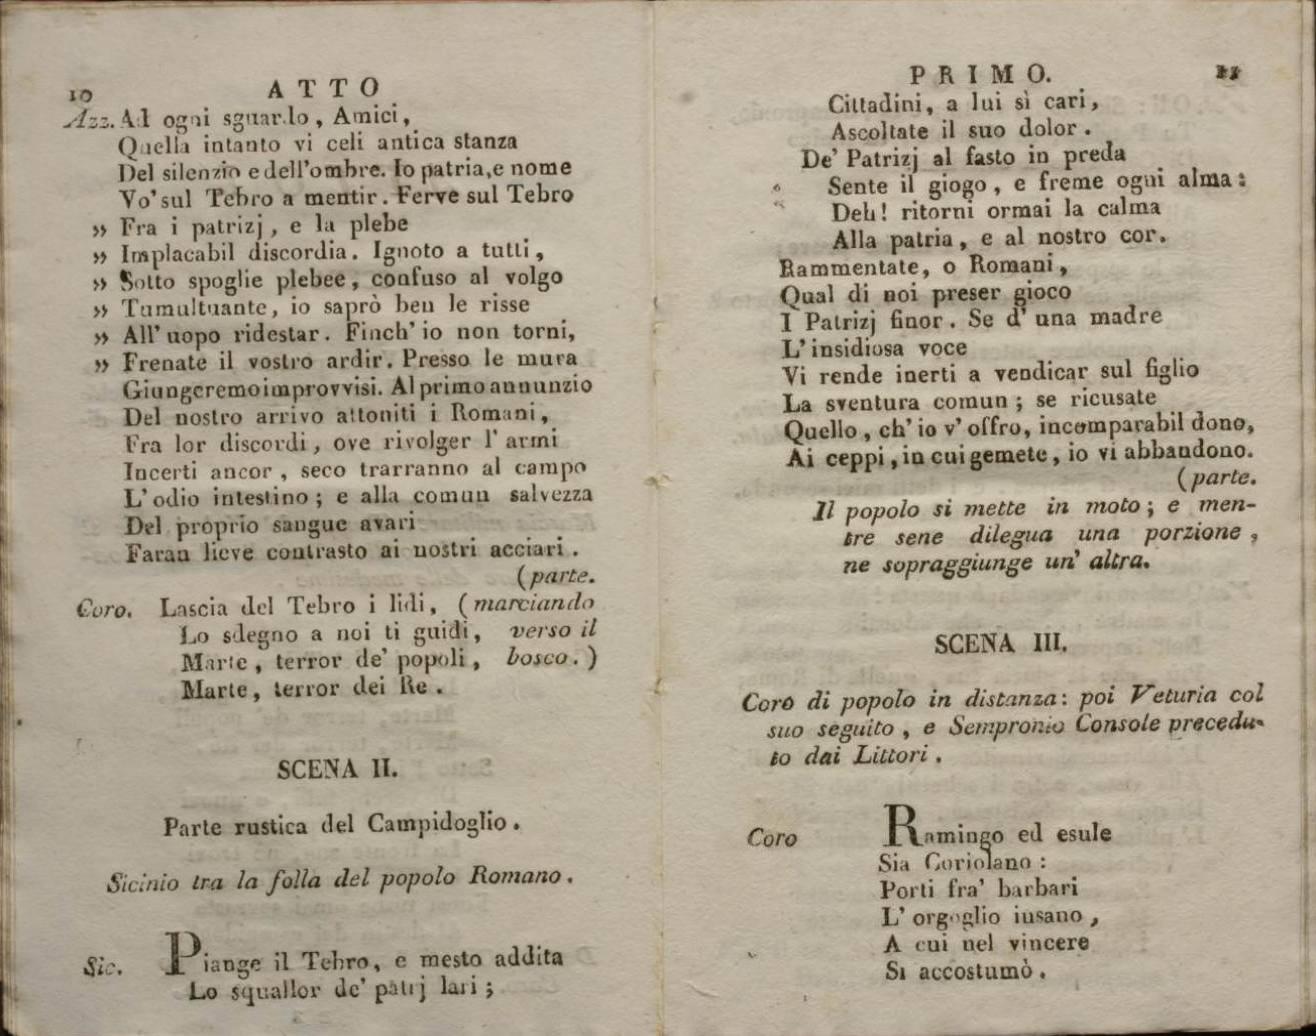 10 ATTO
Azz. Ad ogni sguardo, Amici,
Quella intanto vi celi antica stanza
Del silenzio e dell'ombre. Io patria, e nome
Vo' sul Tebro a mentir. Ferve sul Tebro
» Fra i patrizj, e la plebe
» Implacabil discordia. Ignoto a tutti,
» Sotto spoglie plebee, confuso al volgo
» Tumultuante, io saprò ben le risse
» All' uopo ridestar. Finch' io non torni,
» Frenate il vostro ardir. Presso le mura
Giungeremo improvvisi. Al primo annunzio
Del nostro arrivo attoniti i Romani,
Fra lor discordi, ove rivolger l' armi
Incerti ancor, seco trarranno al campo
L' odio intestino; e alla comun salvezza
Del proprio sangue avari
Faran lieve contrasto ai nostri acciari.
(parte.
Coro. Lascia del Tebro i lidi, (marciando
Lo sdegno a noi ti guidi, verso il
Marte, terror de' popoli, bosco.)
Marte, terror dei Re.
SCENA II.
Parte rustica del Campidoglio.
Sicinio tra la folla del popolo Romano.
Sic. Piange il Tebro, e mesto addita
Lo squallor de' patrj lari;
PRIMO. 11
Cittadini, a lui sì cari,
Ascoltate il suo dolor.
De' Patrizj al fasto in preda
Sente il giogo, e freme ogni alma:
Deh! ritorni ormai la calma
Alla patria, e al nostro cor.
Rammentate, o Romani,
Qual di noi preser gioco
I Patrizj finor. Se d' una madre
L' insidiosa voce
Vi rende inerti a vendicar sul figlio
La sventura comun; se ricusate
Quello, ch' io v' offro, incomparabil dono,
Ai ceppi, in cui gemete, io vi abbandono.
(parte.
Il popolo si mette in moto; e men-
tre sene dilegua una porzione,
ne sopraggiunge un' altra.
SCENA III.
Coro di popolo in distanza: poi Veturia col
suo seguito, e Sempronio Console precedu-
to dai Littori.
Coro Ramingo ed esule
Sia Coriolano:
Porti fra' barbari
L' orgoglio insano,
A cui nel vincere
Si accostumò.